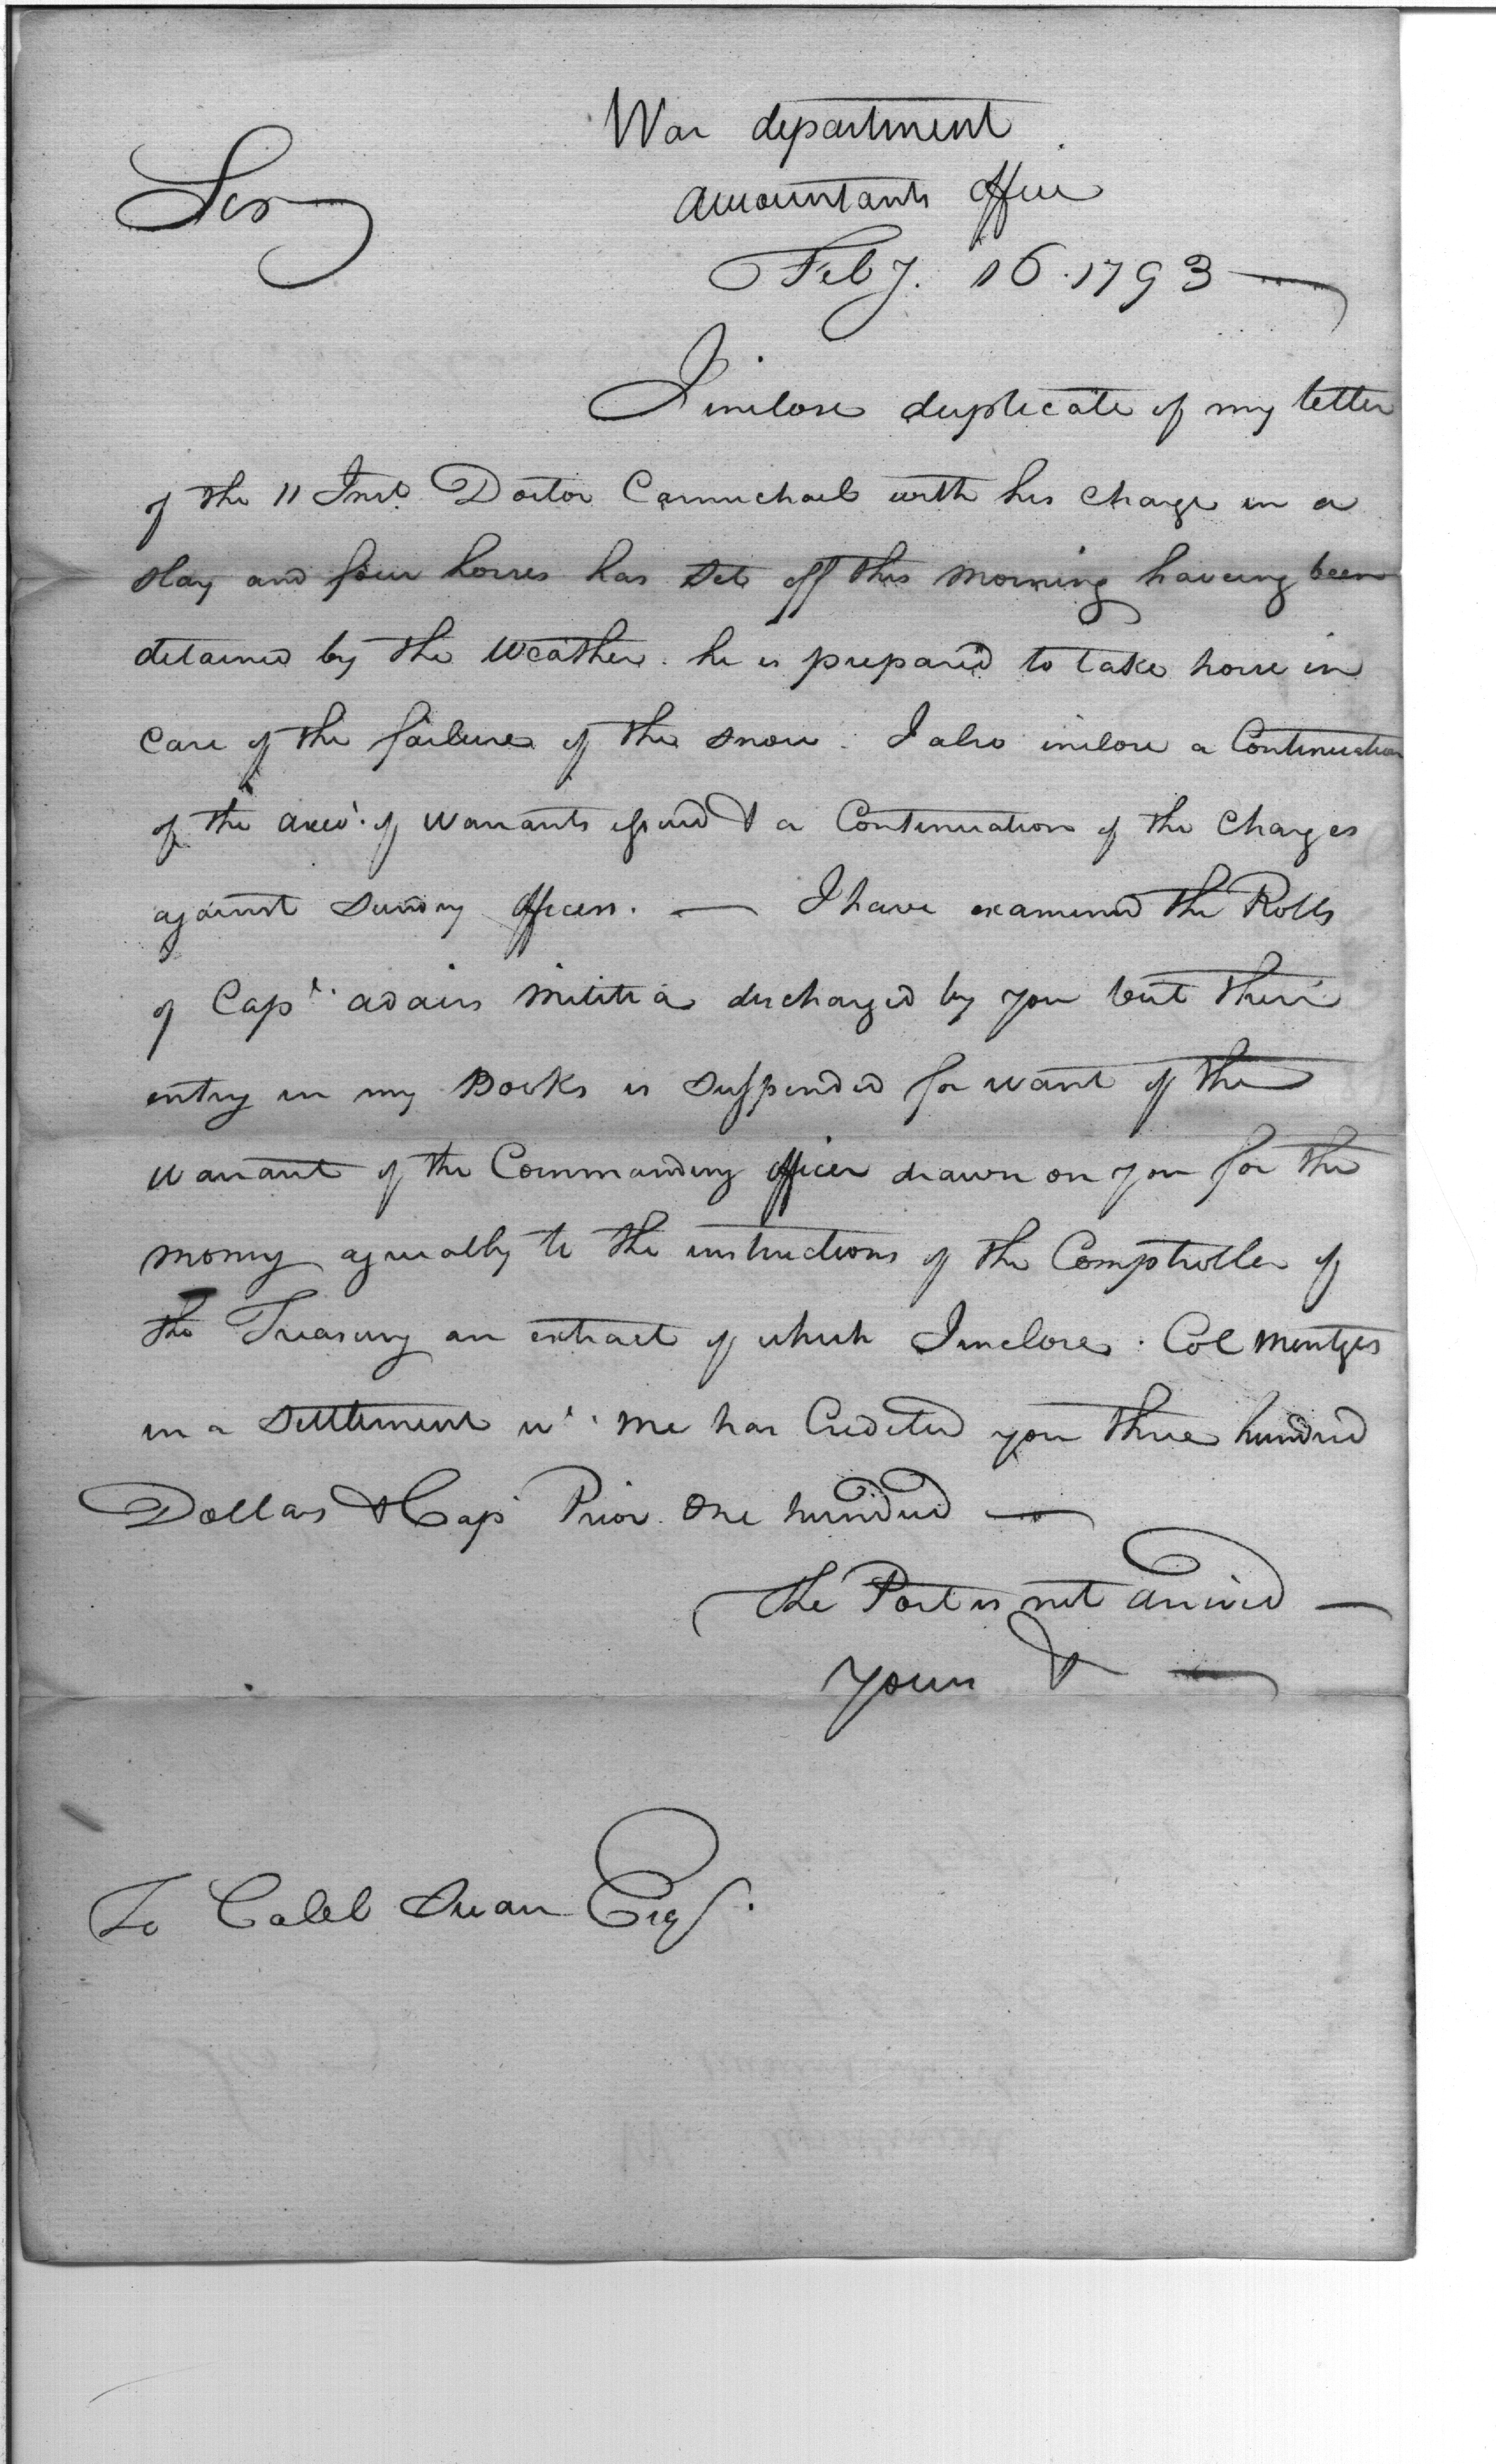 War department
Sir
accountants office
Feby. 16. 1793
I inclose duplicate of my letter
of the 11 Inst. Doctor Carmichael with his charge in a
slay and four horses has set off this morning having been
detained by the Weather. he is prepared to take horse in
case of the failure of the snow. I also inclose a Continuation
of the acco.t of Warrants issued & a Continuation of the Charges
against sundry officers. — I have examined the Rolls
of Capt. adairs militia discharged by you but their
entry in my Books is suspended for want of the
warrant of the Commanding officer drawn on you for the
money agreeably to the instructions of the Comptroller of
the Treasury an extract of which I inclose. Col Mentges
in a settlement wt. me has Credited you three hundred
Dollars & Capt Prior one hundred —
the Post is not arrived —
yours & —
To Caleb Swan Esqr.